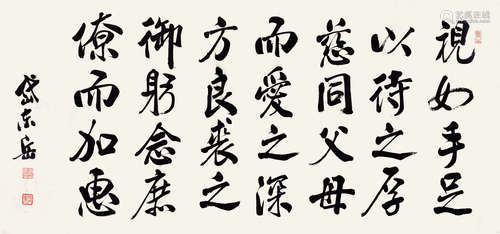 視如手足
以待之厚
慈同父母
而愛之深
方良裘之
御躬念庶
僚而加惠
岱东岳